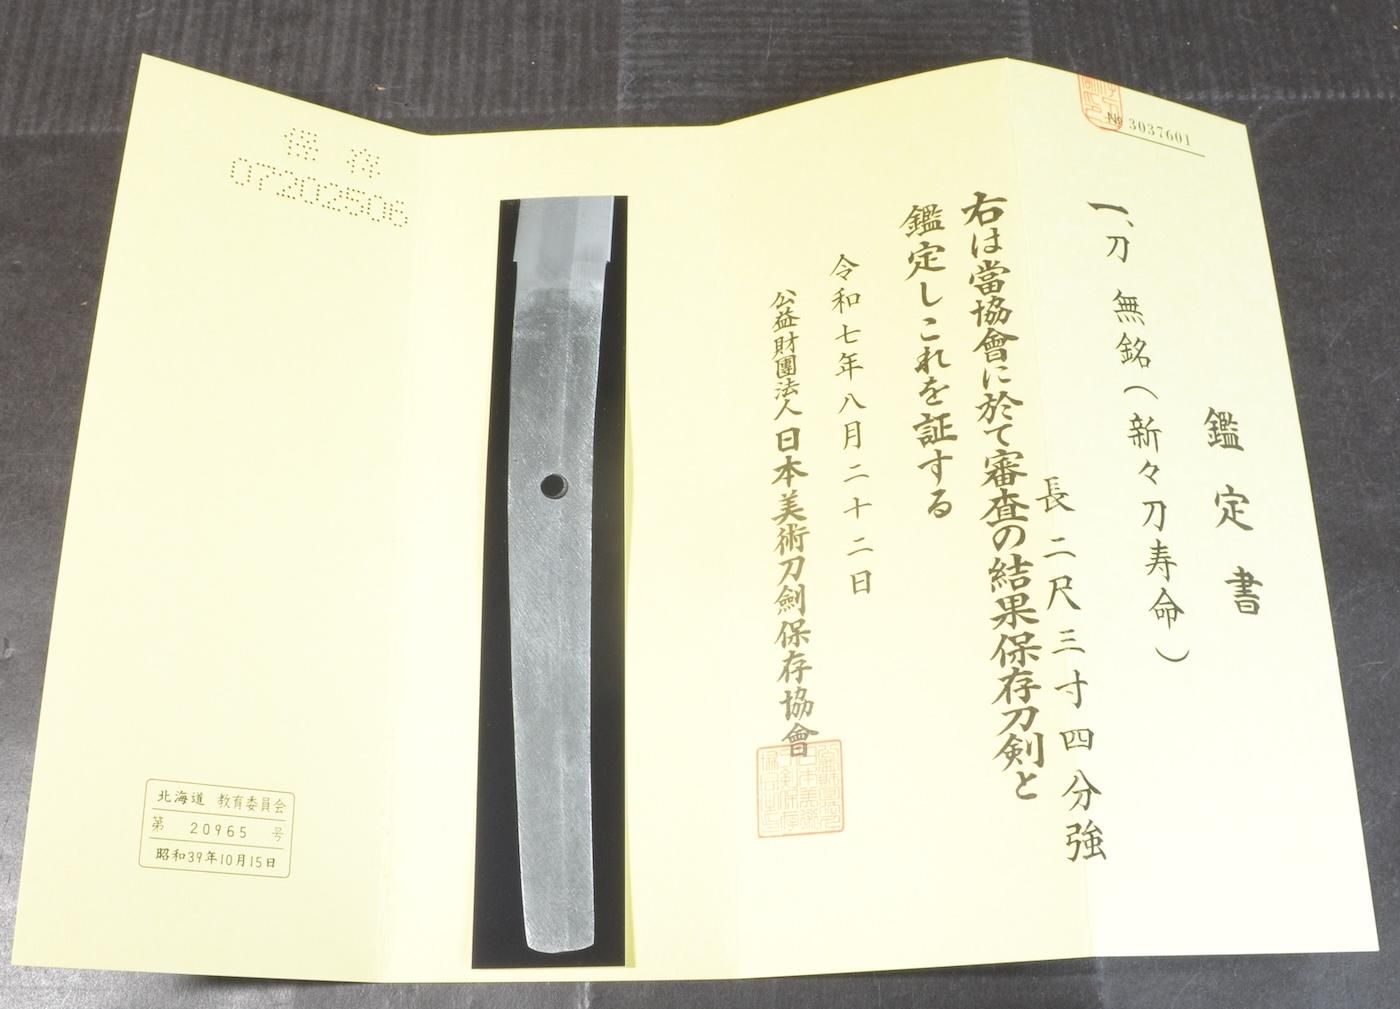 № 3037601
鑑定書
一、刀 無銘(新々刀寿命)
長 二尺三寸四分強
右は當協會に於て審査の結果保存刀剣と
鑑定しこれを証する
令和七年八月二十二日
公益財團法人日本美術刀劍保存協會
保存
07202506
北海道 教育委員会
第 20965 号
昭和39年10月15日